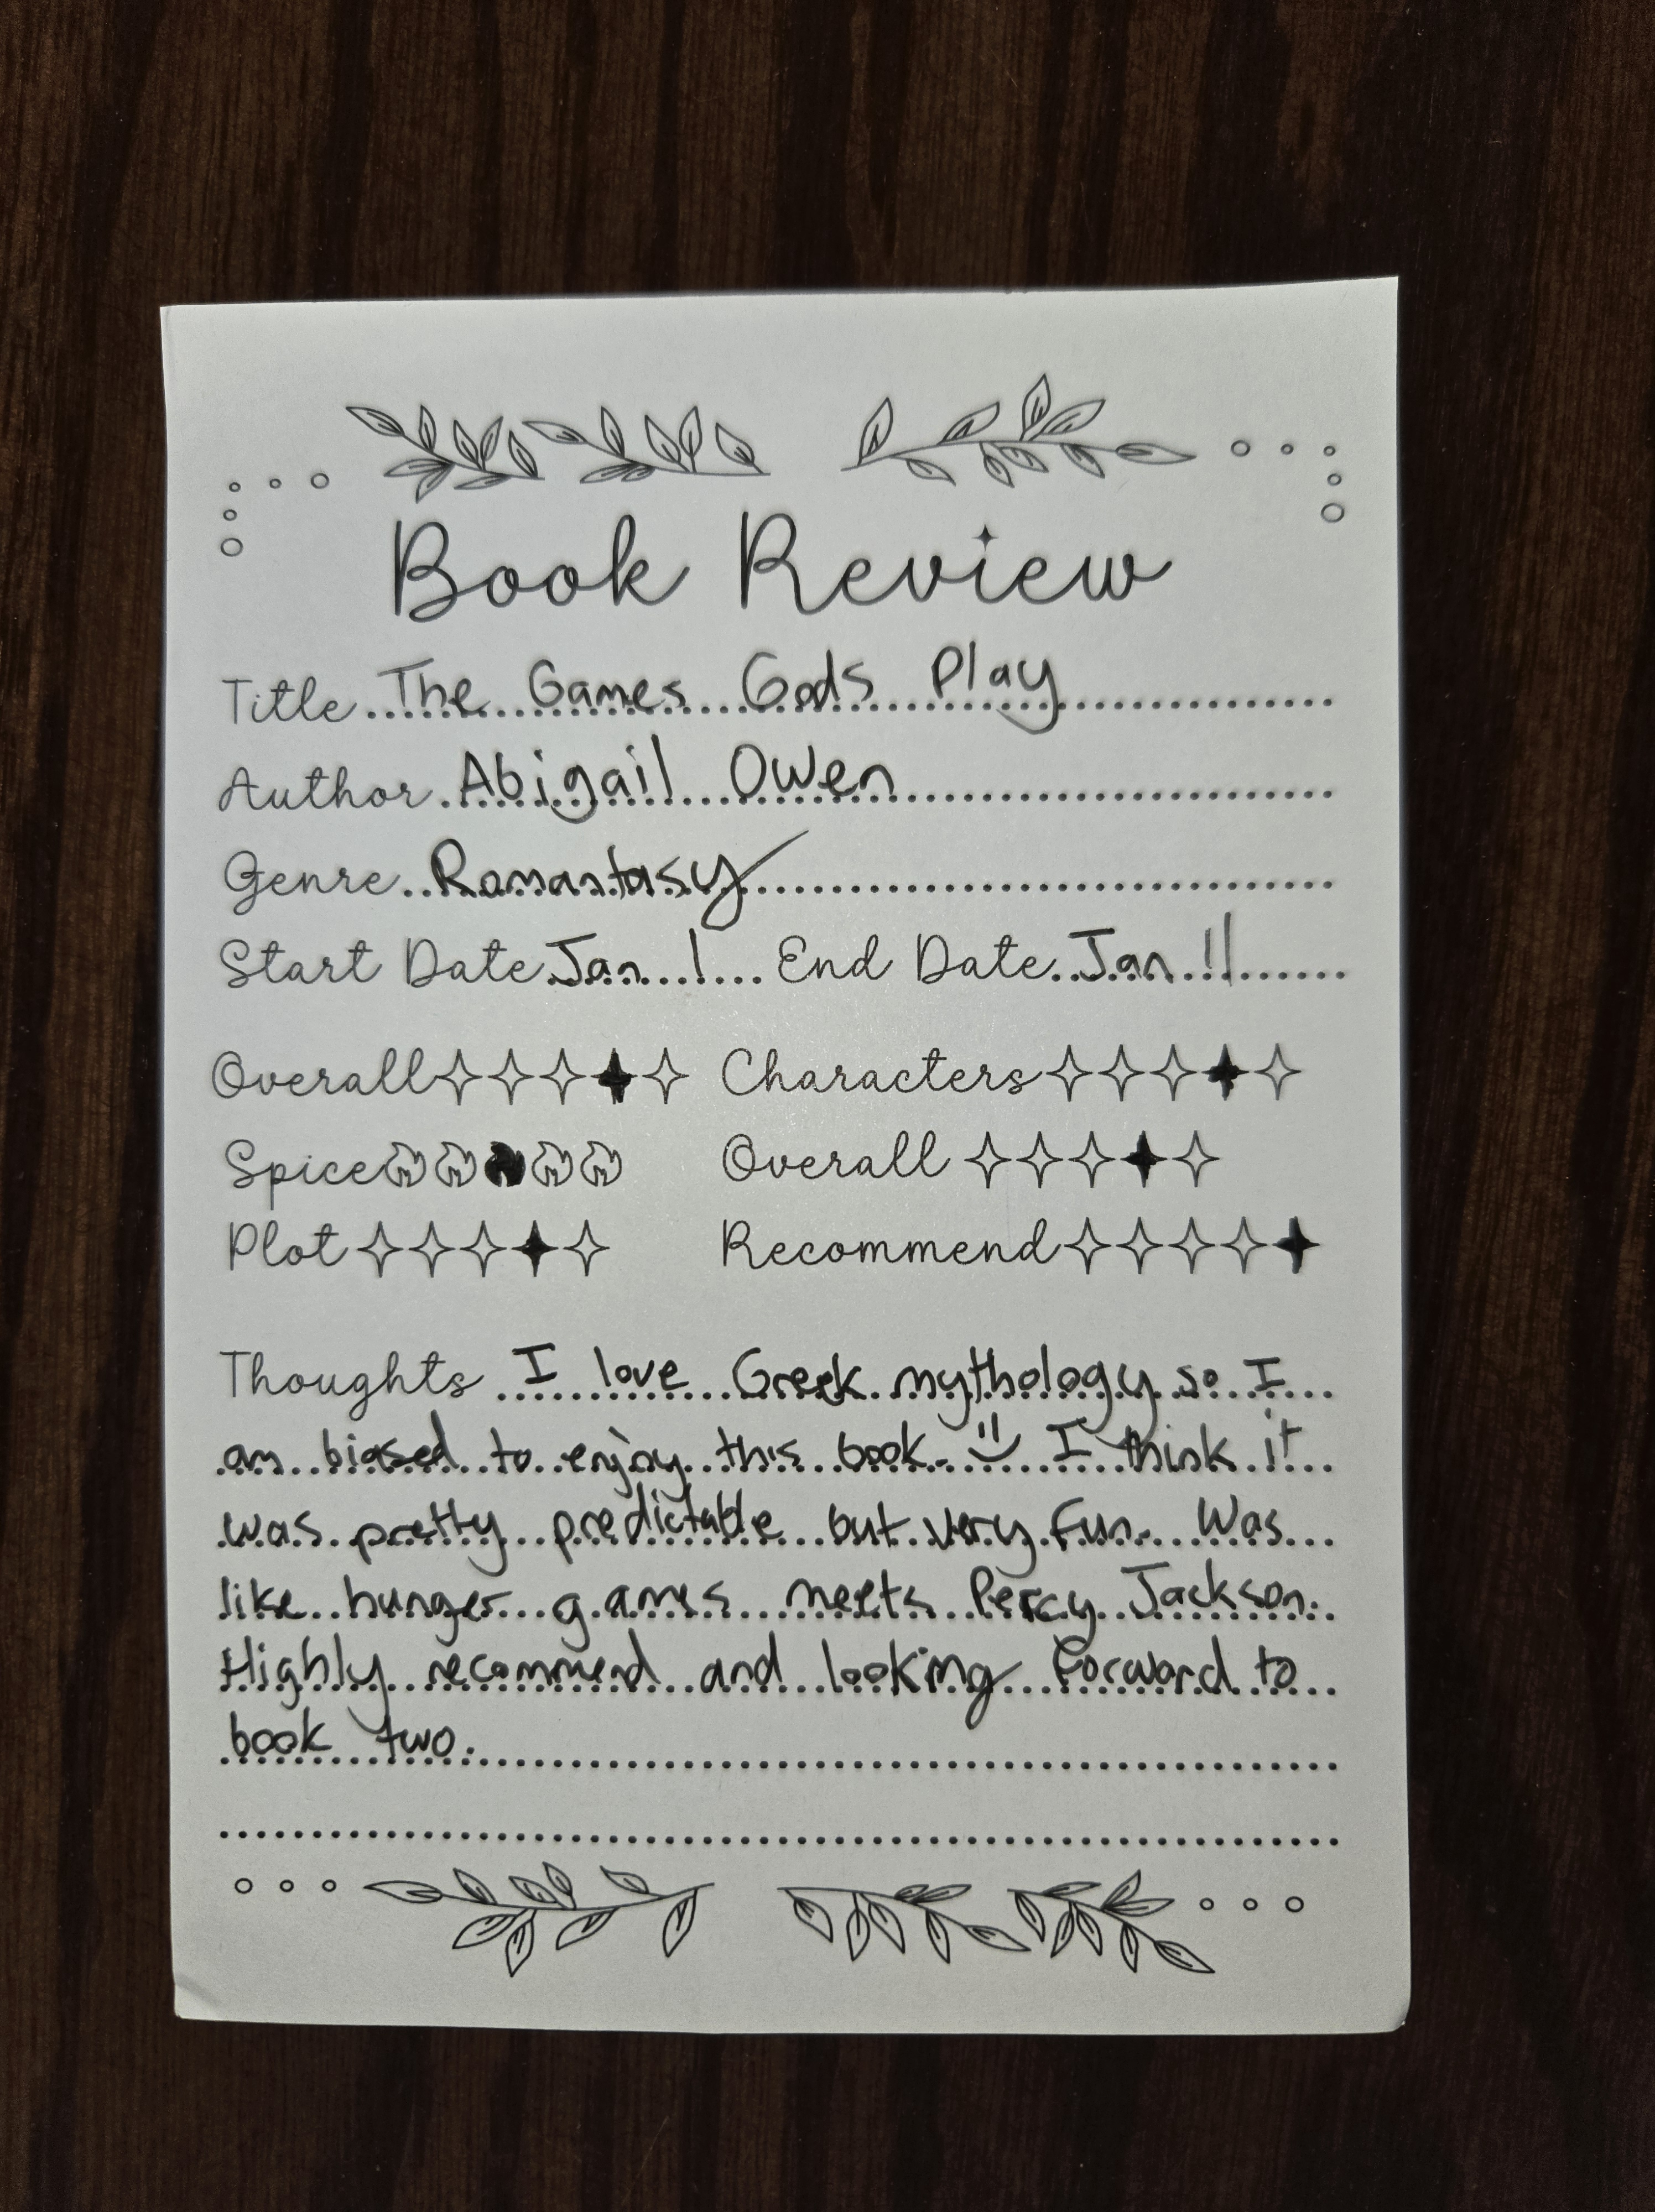 Book Review
Title The Games Gods Play
Author Abigail Owen
Genre Romantasy
Start Date Jan 1 End Date Jan 11
Overall Characters
Spice Overall
Plot Recommend
Thoughts I love Greek mythology so I
am biased to enjoy this book. I think it
was pretty predictable but very fun. Was
like hunger games meets Percy Jackson.
Highly recommend and looking forward to
book two.